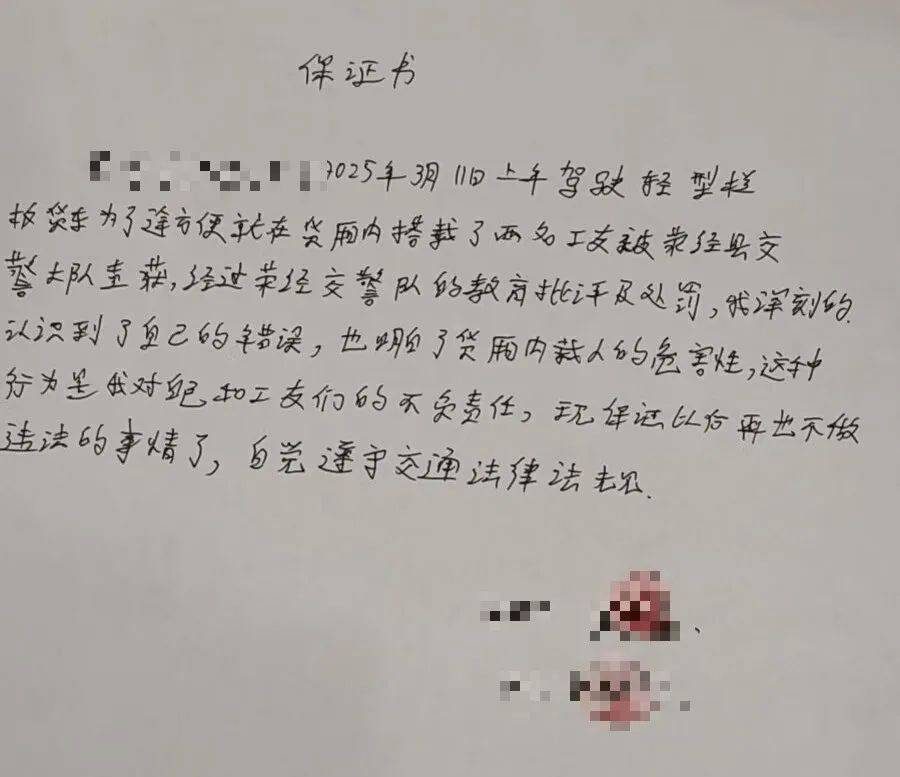 保证书
2025年3月11日上午驾驶轻型栏
板货车为了途方便就在货厢内搭载了两名工友被荥经县交
警大队查获,经过荥经交警队的教育批评及处罚,我深刻的
认识到了自己的错误,也明白了货厢内载人的危害性,这种
行为是我对自己和工友们的不负责任,现保证以后再也不做
违法的事情了,自觉遵守交通法律法规.